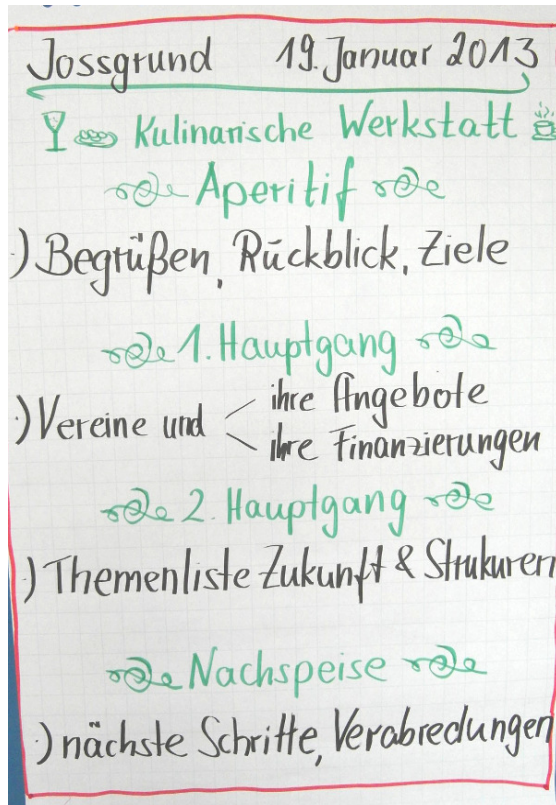 Jossgrund 19. Januar 2013
Kulinarische Werkstatt
Aperitif
·) Begrüßen, Rückblick, Ziele
1. Hauptgang
·) Vereine und ihre Angebote
ihre Finanzierungen
2. Hauptgang
·) Themenliste Zukunft & Strukuren
Nachspeise
·) nächste Schritte, Verabredungen